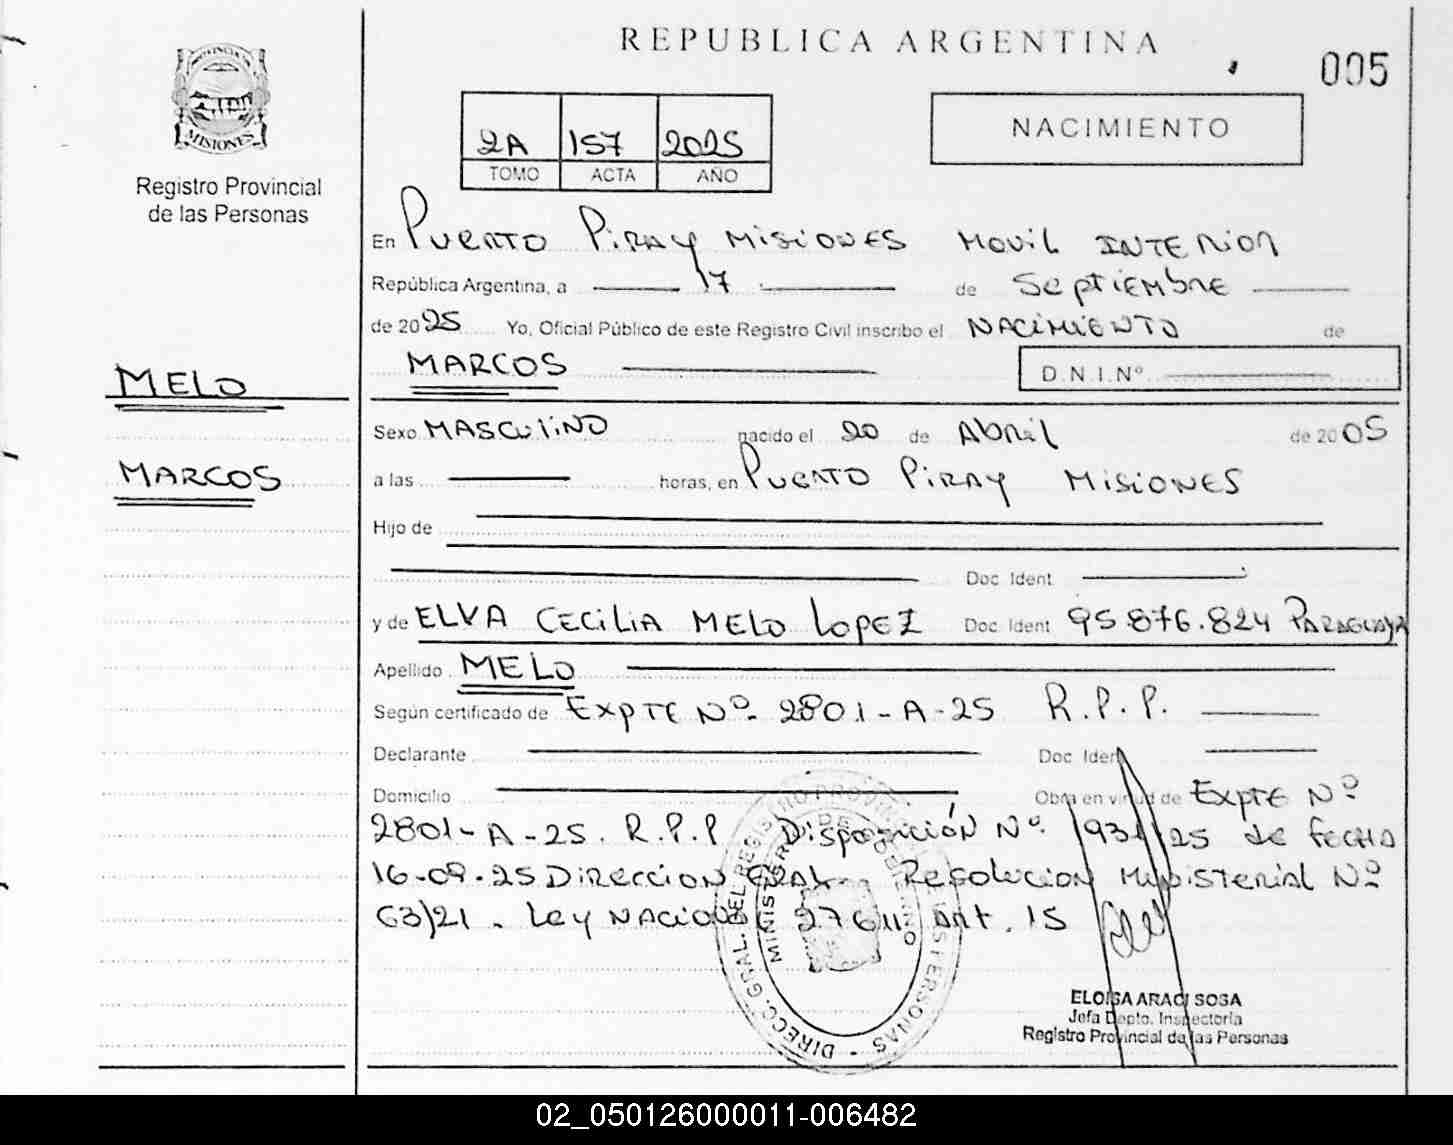 REPUBLICA ARGENTINA
005
PROVINCIA DE MISIONES
Registro Provincial
de las Personas
2A 157 2025
TOMO ACTA AÑO
NACIMIENTO
En Puerto Piray Misiones Movil Interior
República Argentina, a 17 de Septiembre
de 2025 Yo, Oficial Público de este Registro Civil inscribo el NACIMIENTO de
MARCOS D.N.I.Nº
MELO
MARCOS
Sexo MASCULINO nacido el 20 de Abril de 2005
a las horas, en Puerto Piray Misiones
Hijo de
Doc. Ident
y de ELVA CECILIA MELO LOPEZ Doc. Ident 95.876.824 PARAGUAYA
Apellido MELO
Según certificado de Expte Nº 2801-A-25 R.P.P.
Declarante Doc. Ident
Domicilio Obra en virtud de Expte Nº
2801-A-25. R.P.P Disposición Nº 1931/25 de fecha
16-09-25 Direccion Gral. Resolucion Ministerial Nº
63/21. Ley Nacional 27611 Art. 15
DIRECC. GRAL. DEL REGISTRO PROVINCIAL DE LAS PERSONAS
MINISTERIO DE GOBIERNO
ELOISA ARACI SOSA
Jefa Depto. Inspectoria
Registro Provincial de las Personas
02_050126000011-006482